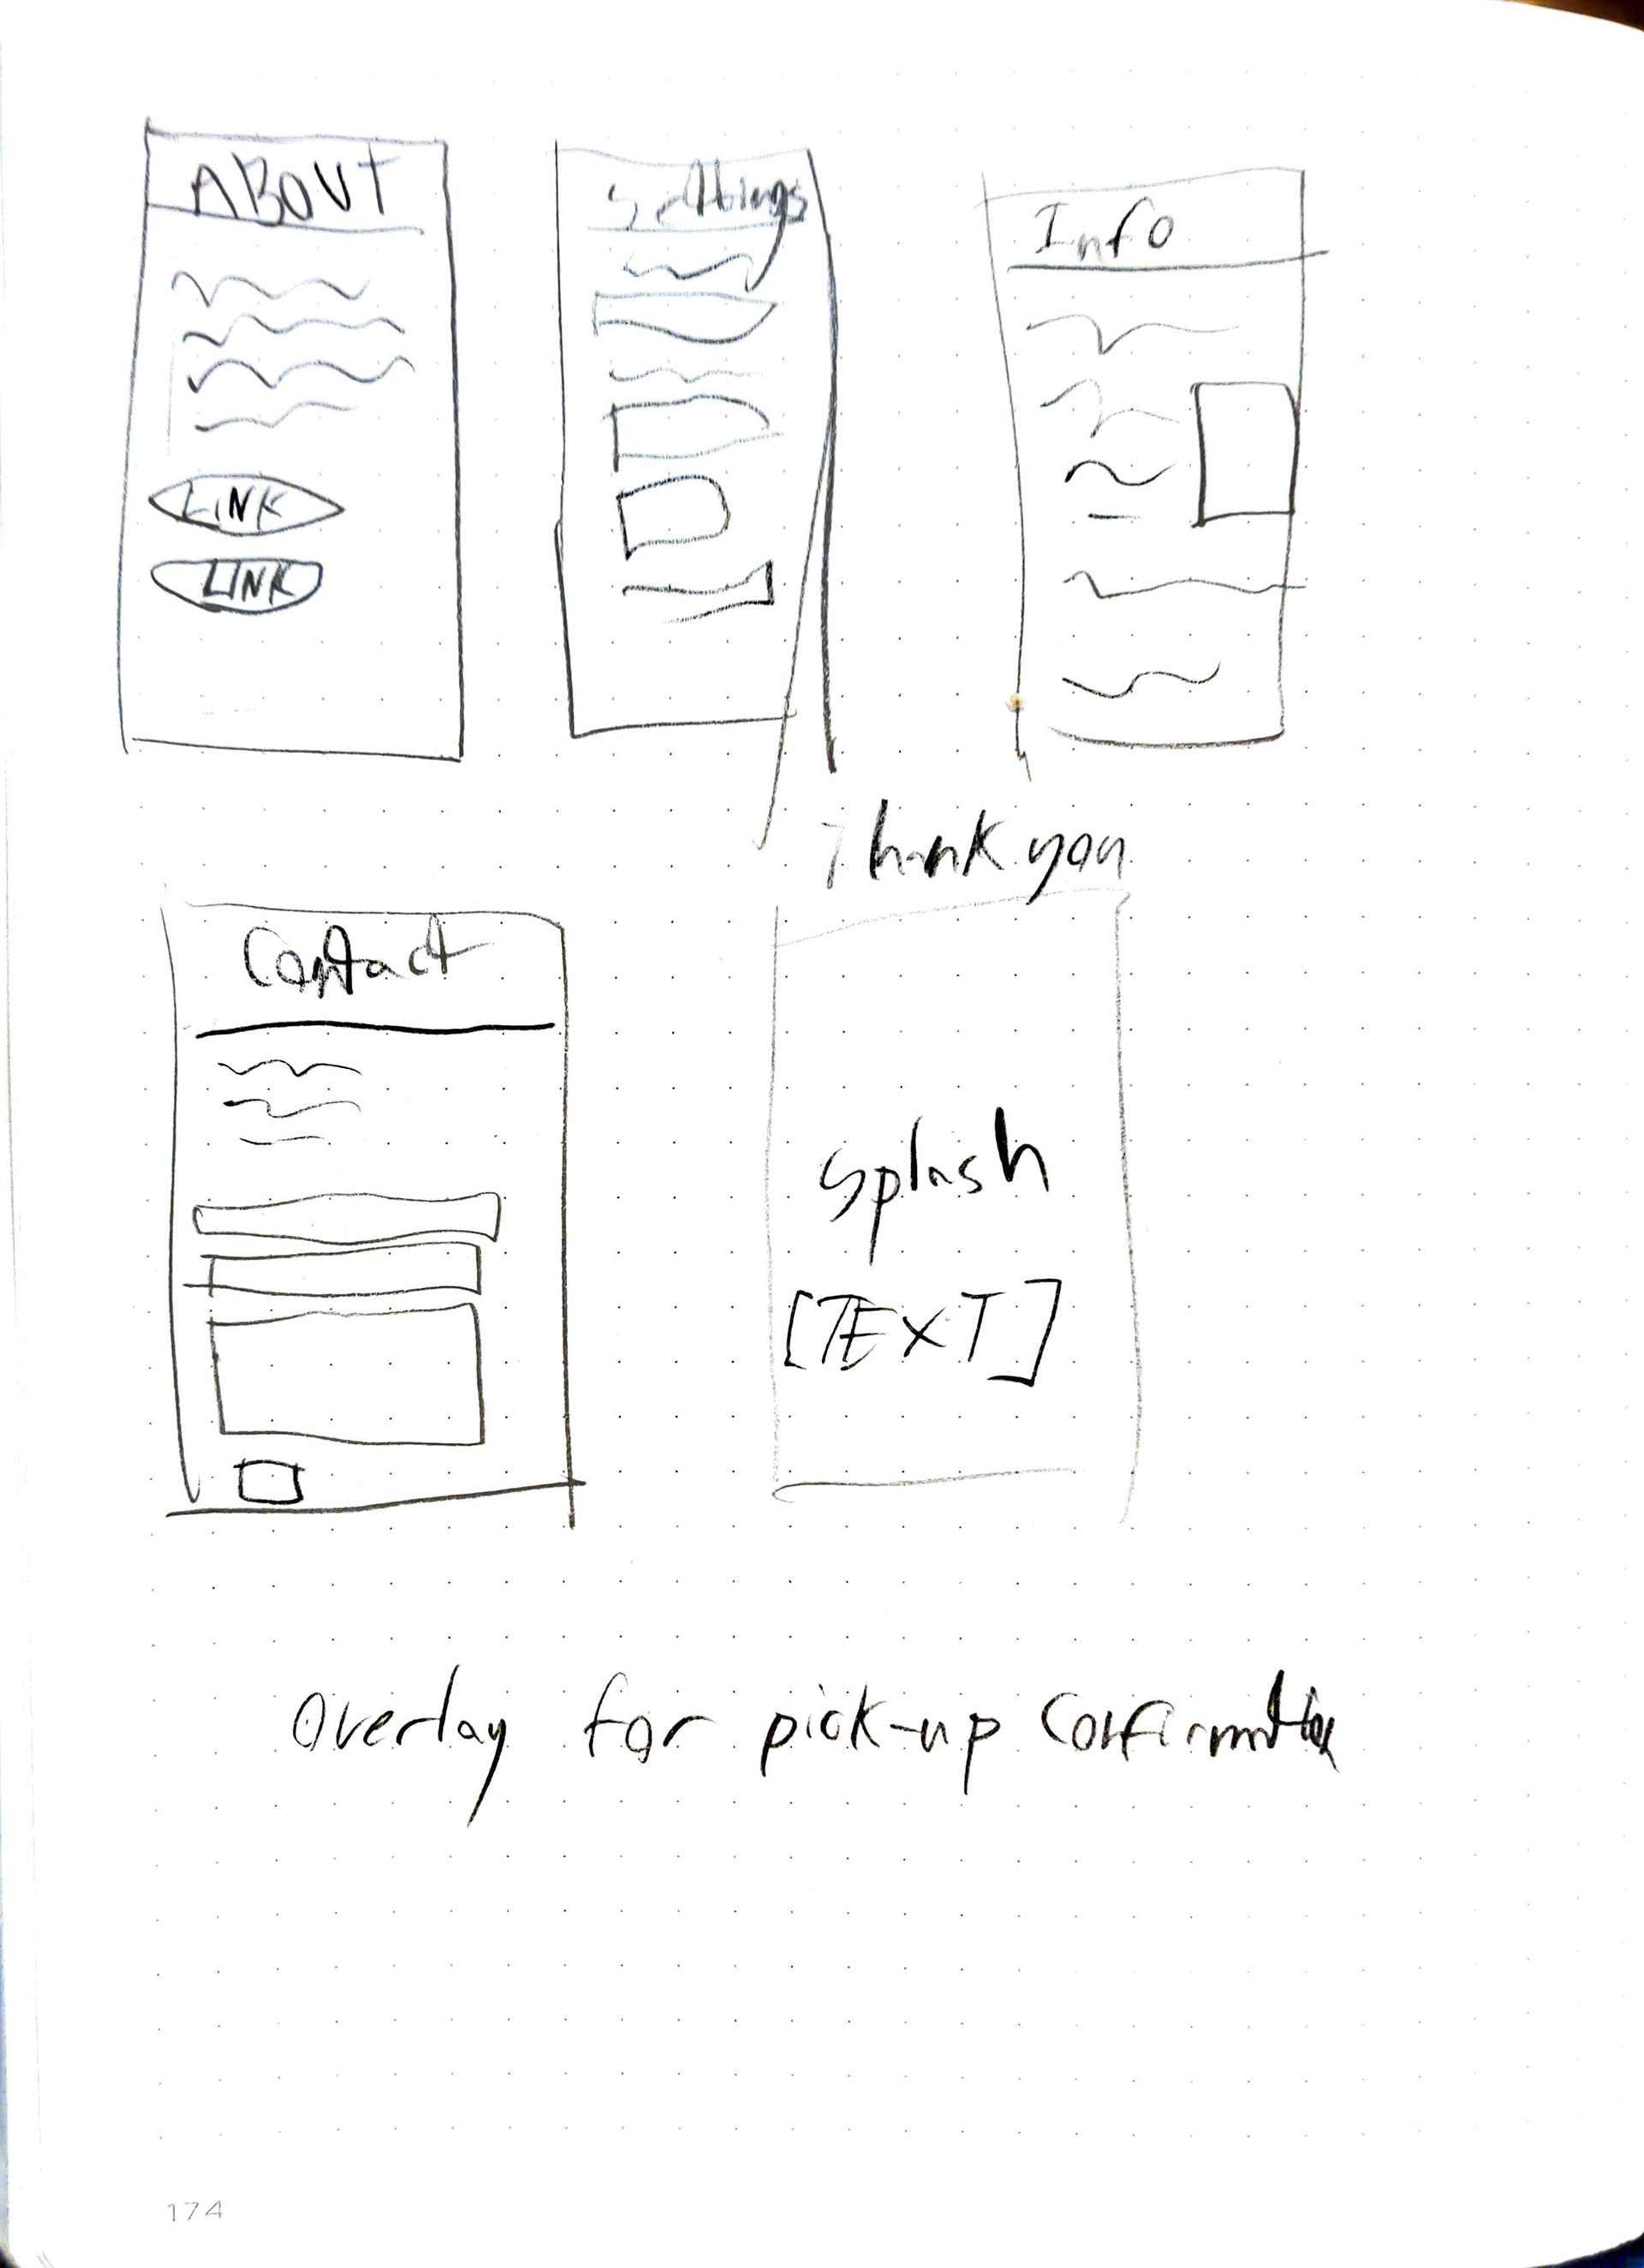 ABOUT
Settings
Info
LINK
LINK
Thank you
Contact
Splash
[TEXT]
Overlay for pick-up confirmation
174